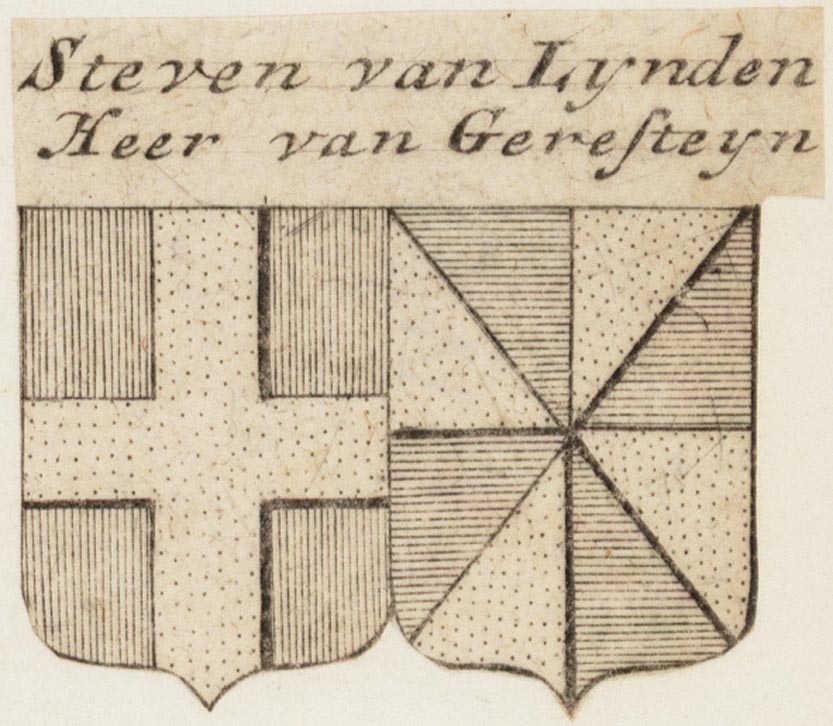 Steven van Lynden
Heer van Gereſteyn